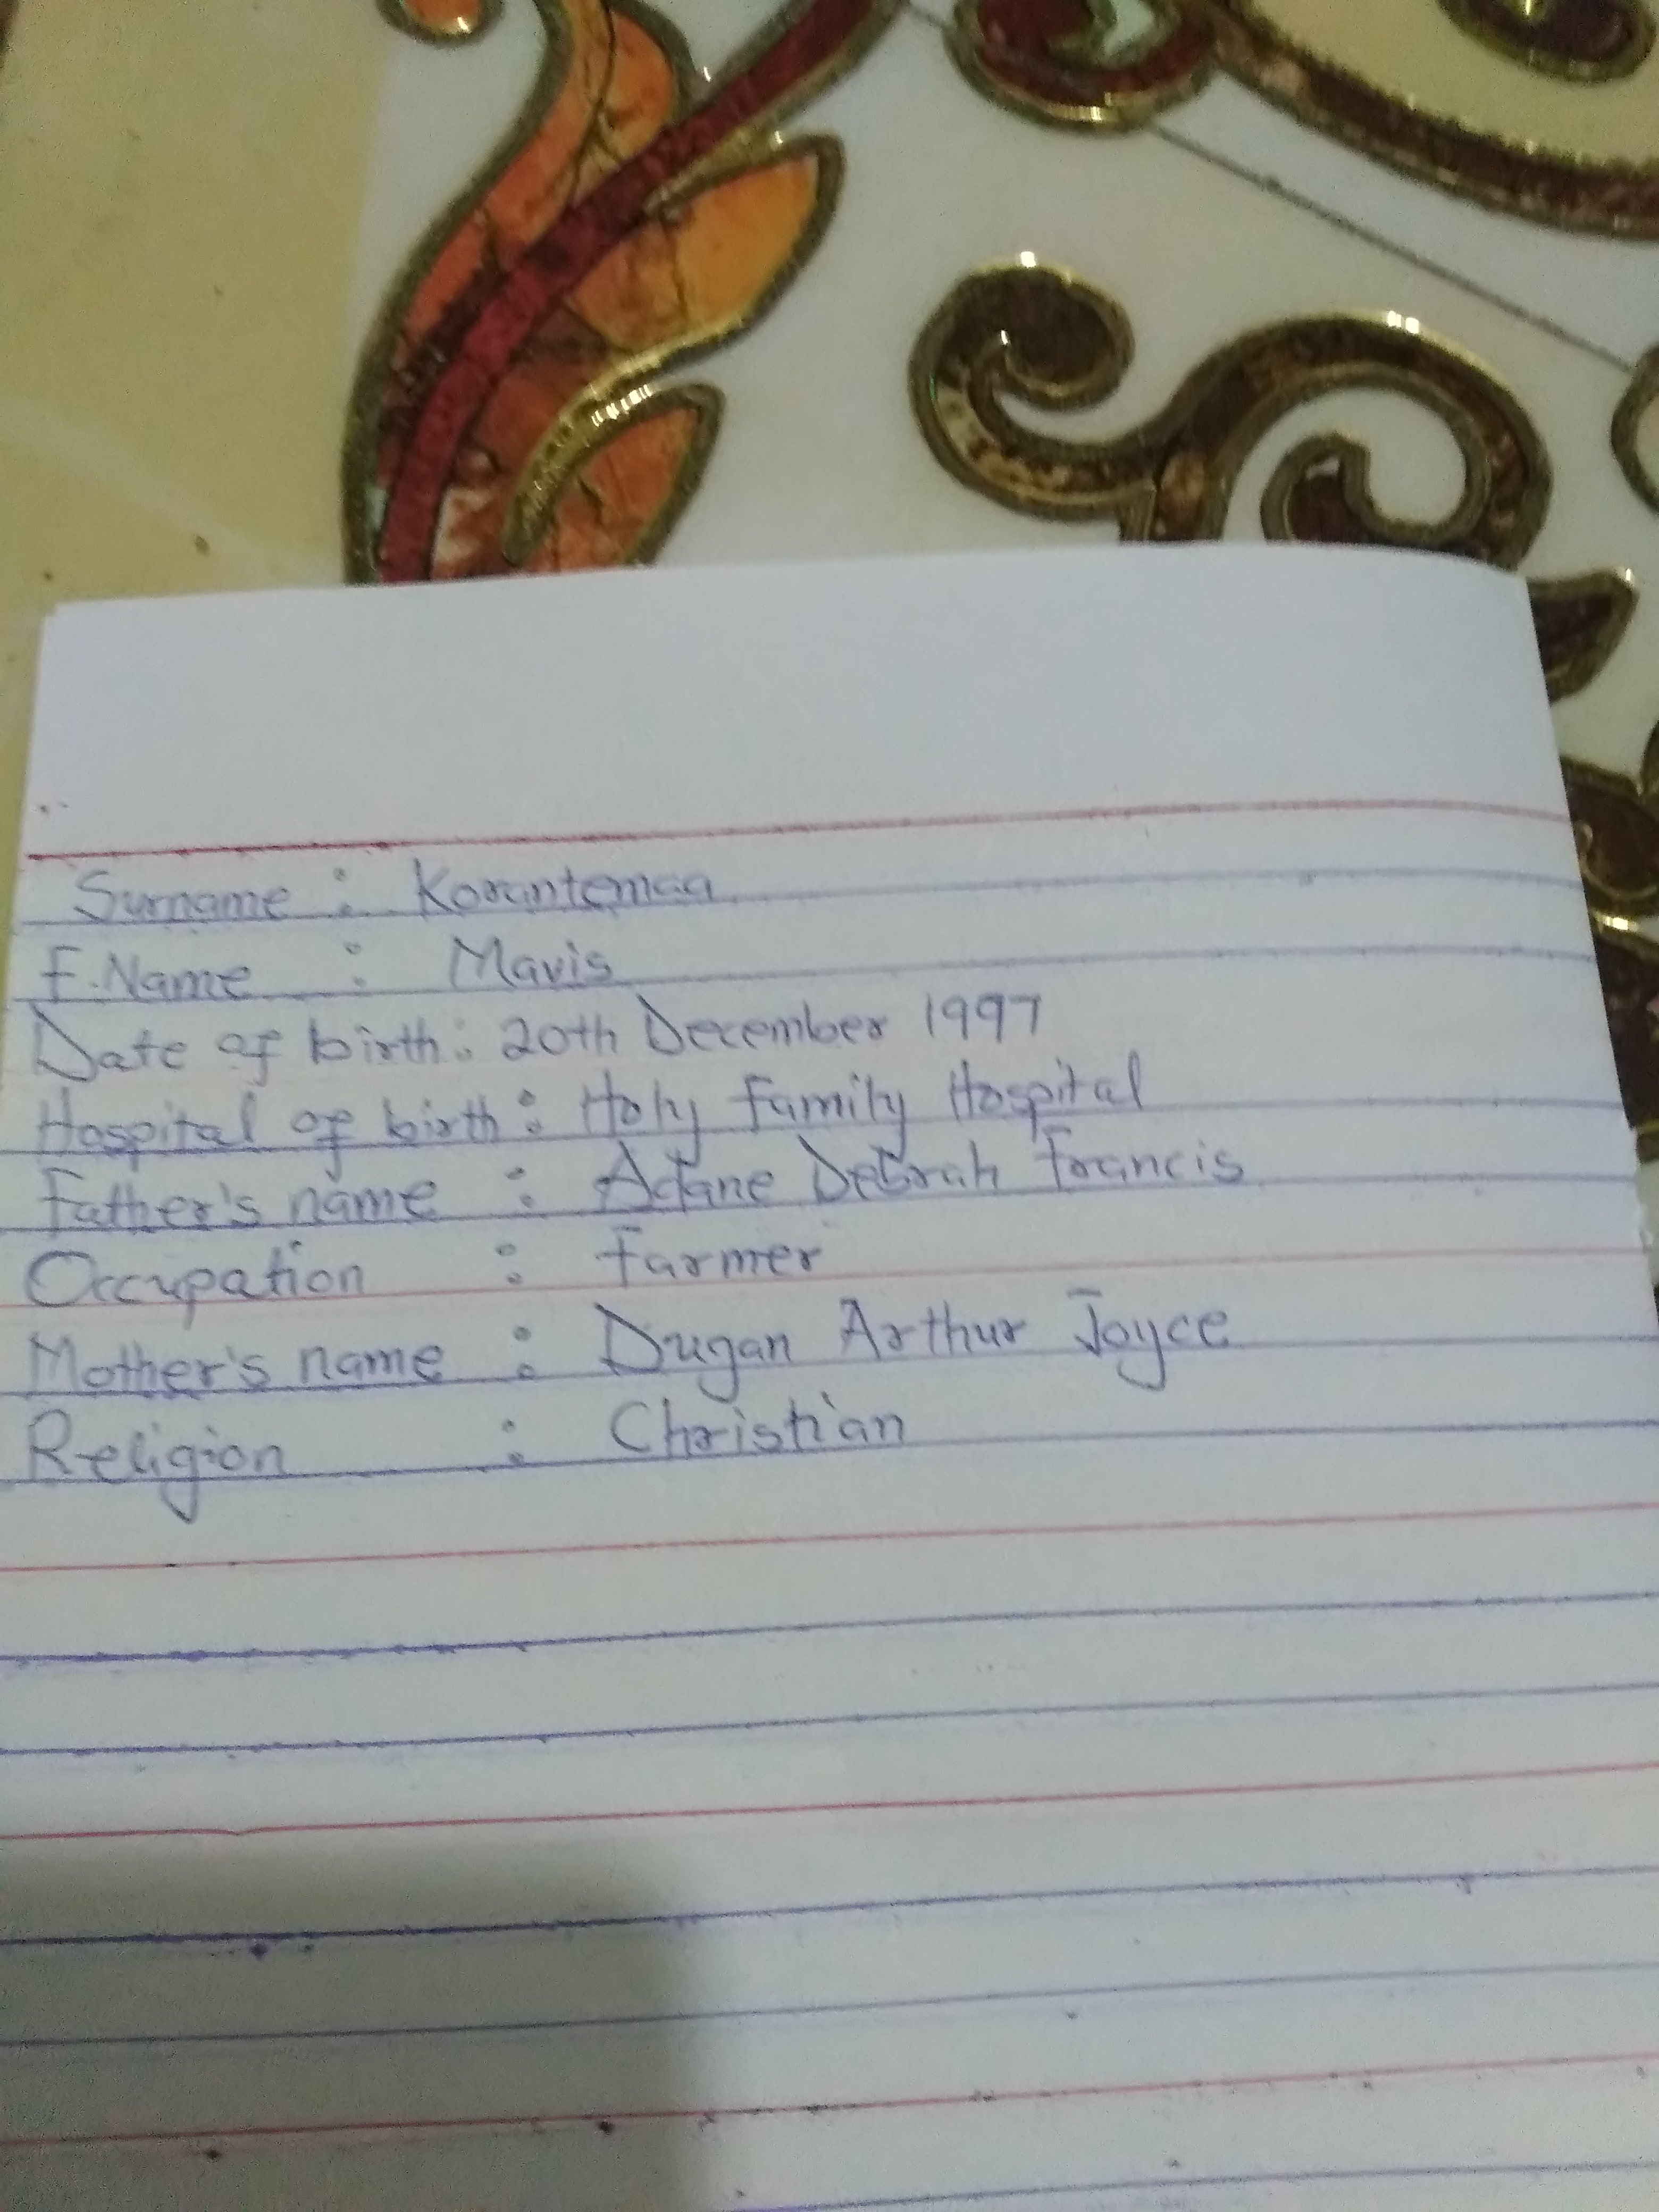 Surname : Korantemaa
F. Name : Mavis
Date of birth : 20th December 1997
Hospital of birth : Holy Family Hospital
Father's name : Adane Debrah Francis
Occupation : Farmer
Mother's name : Dugan Arthur Joyce
Religion : Christian